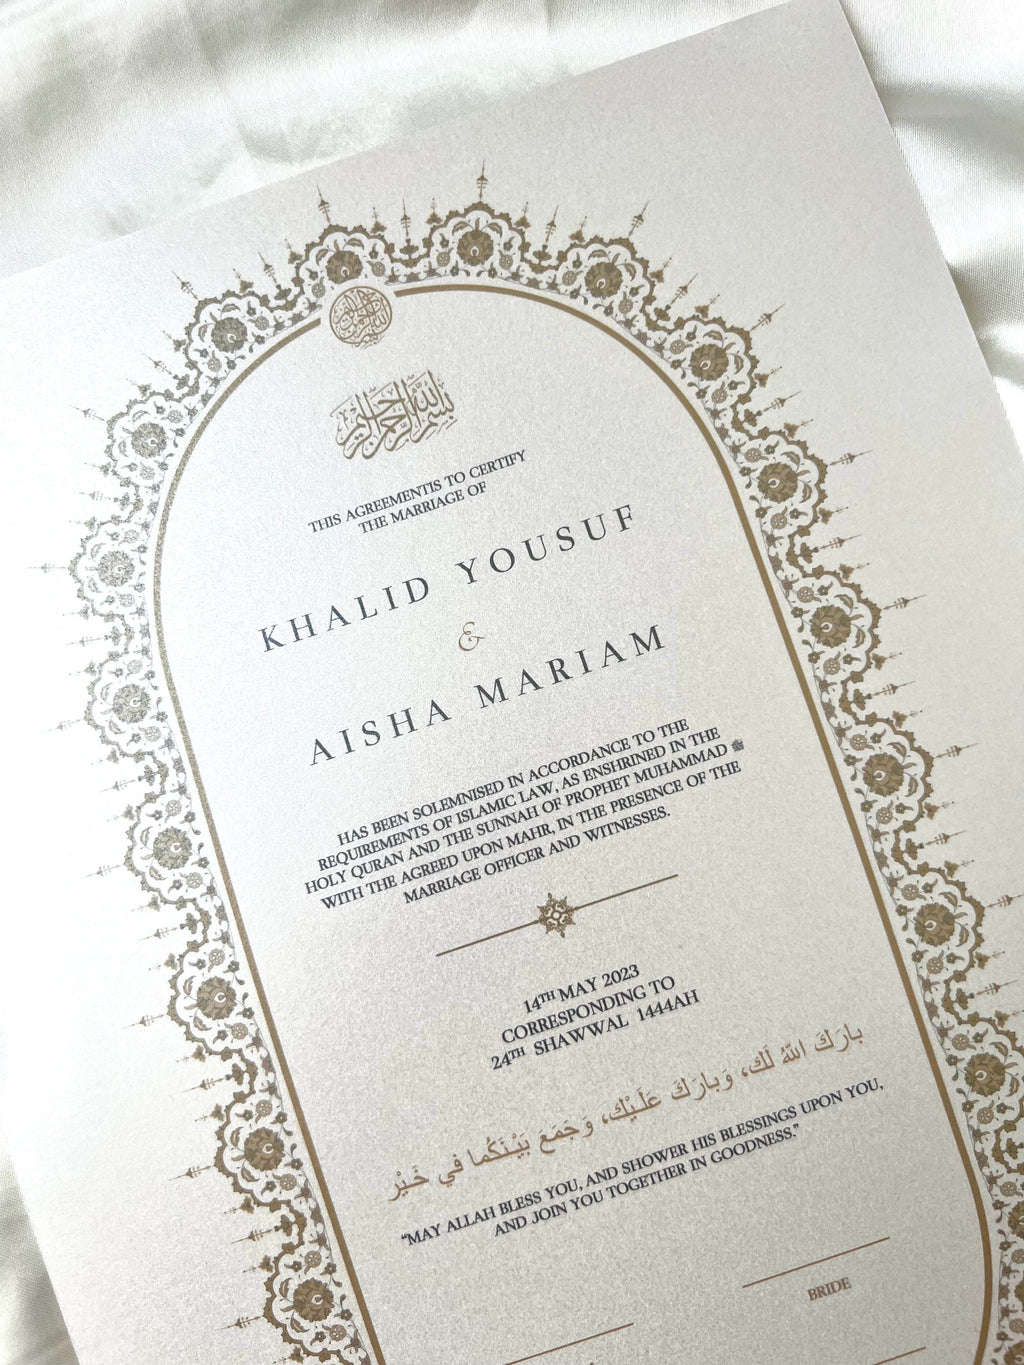 بسم الله الرحمن الرحيم
THIS AGREEMENTIS TO CERTIFY
THE MARRIAGE OF
KHALID YOUSUF
&
AISHA MARIAM
HAS BEEN SOLEMNISED IN ACCORDANCE TO THE
REQUIREMENTS OF ISLAMIC LAW, AS ENSHRINED IN THE
HOLY QURAN AND THE SUNNAH OF PROPHET MUHAMMAD ﷺ
WITH THE AGREED UPON MAHR, IN THE PRESENCE OF THE
MARRIAGE OFFICER AND WITNESSES.
14TH MAY 2023
CORRESPONDING TO
24TH SHAWWAL 1444AH
بارَكَ اللهُ لَك، وَبارَكَ عَلَيْك، وَجَمَعَ بَيْنَكُما في خَيْر
“MAY ALLAH BLESS YOU, AND SHOWER HIS BLESSINGS UPON YOU,
AND JOIN YOU TOGETHER IN GOODNESS.”
BRIDE